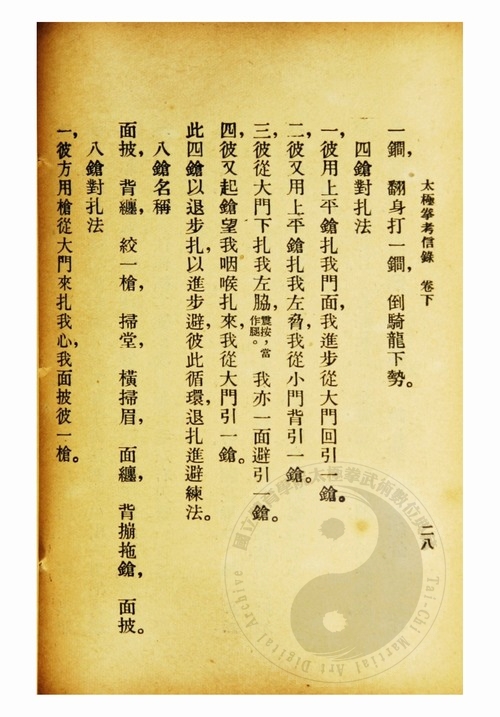 太極拳考信錄 卷下 二八
一鐧, 翻身打一鐧, 倒騎龍下勢。
四鎗對扎法
一,彼用上平鎗扎我門面,我進步從大門回引一鎗。
二,彼又用上平鎗扎我左脅,我從小門背引一鎗。
三,彼從大門下扎我左脇,震按,當作腿。我亦一面避引一鎗。
四,彼又起鎗望我咽喉扎來,我從大門引一鎗。
此四鎗以退步扎,以進步避,彼此循環,退扎進避練法。
八鎗名稱
面披, 背纏, 絞一槍, 掃堂, 橫掃眉, 面纏, 背搠拖鎗, 面披。
八鎗對扎法
一,彼方用槍從大門來扎我心,我面披彼一槍。
Tai-Chi Martial Art Digital Archive